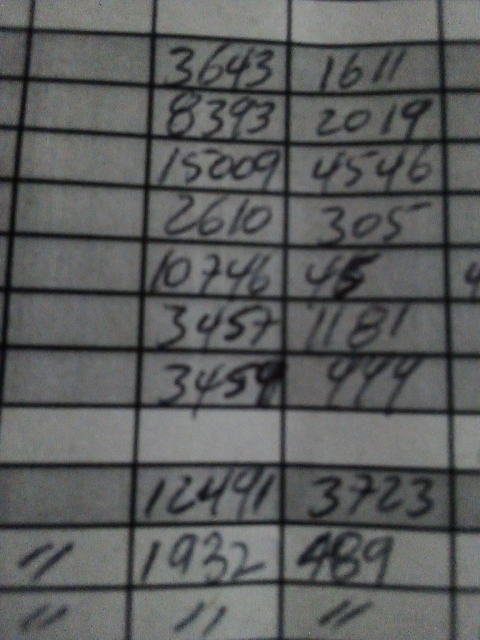 3643 1611
8393 2019
15009 4546
2610 305
10746 45
3457 1181
3459 444
12491 3723
〃 1932 489
〃 〃 〃